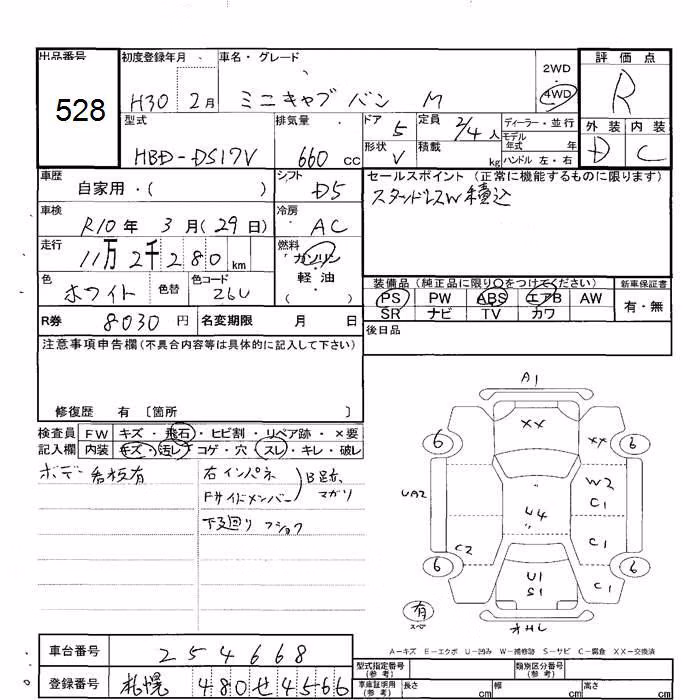 出品番号 初度登録年月 車名・グレード 評価点
528 H30 2月 ミニキャブ バン M 2WD 4WD R
型式 排気量 ドア 定員 ディーラー・並行 外装 内装
HBD-DS17V 660 cc 5 2/4人 モデル年式 年 D C
形状 V 積載 kg ハンドル 左・右
車歴 シフト セールスポイント (正常に機能するものに限ります)
自家用・( ) D5 スタッドレスW積込
車検 冷房
R10年 3月(29日) AC
走行 燃料
11万2千280km ガソリン
軽油
( )
色 ホワイト 色替 色コード 26U
装備品(純正品に限り○をつけてください) 新車保証書
PS PW ABS エアB AW 有・無
SR ナビ TV カワ
R券 8030円 名変期限 月 日 後日品
注意事項申告欄(不具合内容等は具体的に記入して下さい)
修復歴 有 〔箇所 〕
検査員 FW キズ・飛石・ヒビ割・リペア跡・×要
記入欄 内装 キズ・汚レ・コゲ・穴・スレ・キレ・破レ
ボデー 看板有 右インパネ
Fサイドメンバー B足赤 マガリ
下廻り フショク
A1
XX
6 XX 6
W2
UA2 C1
U4
C2 C1
6 6
U1 C1
S1
有
スペア
オHL
A-キズ E-エクボ U-凹み W-補修跡 S-サビ C-腐食 XX-交換済
車台番号 254668
型式指定番号(参考) 類別区分番号(参考)
登録番号 札幌 480 せ 4566
車庫証明用(参考) 長さ cm 幅 cm 高さ cm